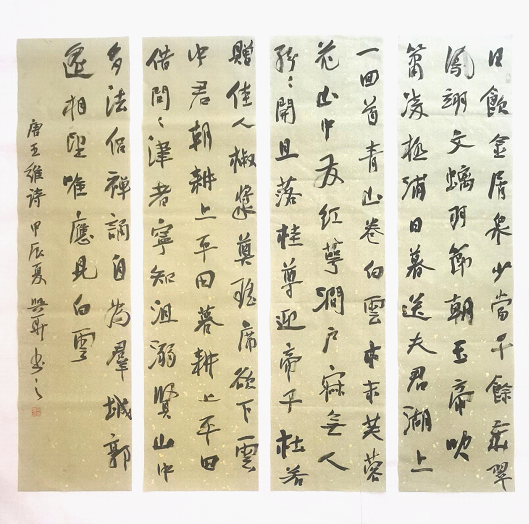 日飲金屑泉少當千餘歲翠
鳳翊文螭羽節朝玉帝吹
簫凌極浦日暮送夫君湖上
一回首青山卷白雲木末芙蓉
花山中發紅萼澗戶寂無人
紛〻開且落桂尊迎帝子杜若
贈佳人椒漿奠瑤席欲下雲
中君朝耕上平田暮耕上平田
借問〻津者寧知沮溺賢山中
多法侶禪誦自為羣城郭
遙相望唯應見白雲
唐王維詩甲辰夏書之